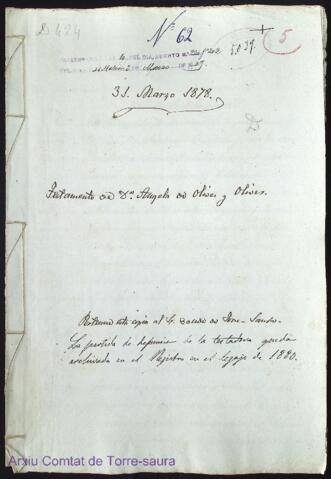 D 424
Nº 62
5
31. Marzo 1878.
D
Testamento de Dª Angela de Olives y Olives.
copia al S. Conde de Torre-Saura.
La partida de defuncion de la testadora queda
archivada en el Registro en el legajo de 1880.
Arxiu Comtat de Torre-saura